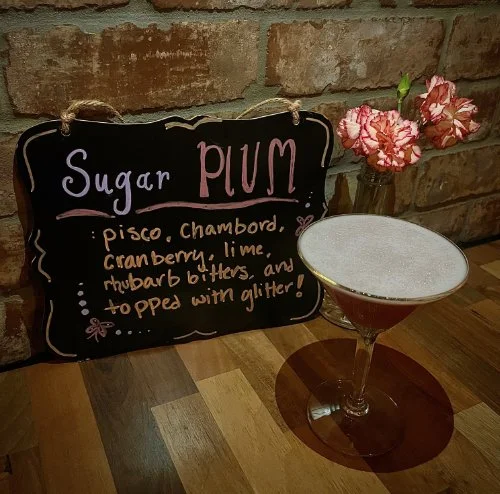 Sugar PLUM
pisco, Chambord,
cranberry, lime,
rhubarb bitters, and
topped with glitter!